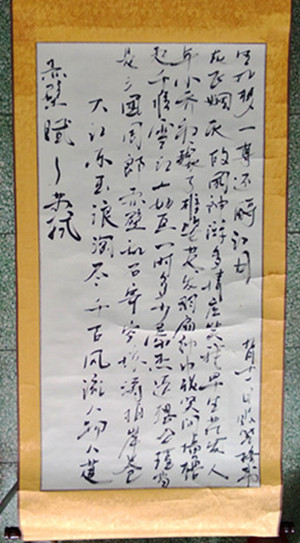 赤壁赋 苏轼
大江东去浪淘尽千古风流人物人道
是三国周郎赤壁乱石穿空惊涛拍岸卷
起千堆雪江山如画一时多少豪杰遥想公瑾当
年小乔初嫁了雄姿英发羽扇纶巾谈笑间樯橹
灰飞烟灭故国神游多情应笑我早生华发人
生如梦一尊还酹江月